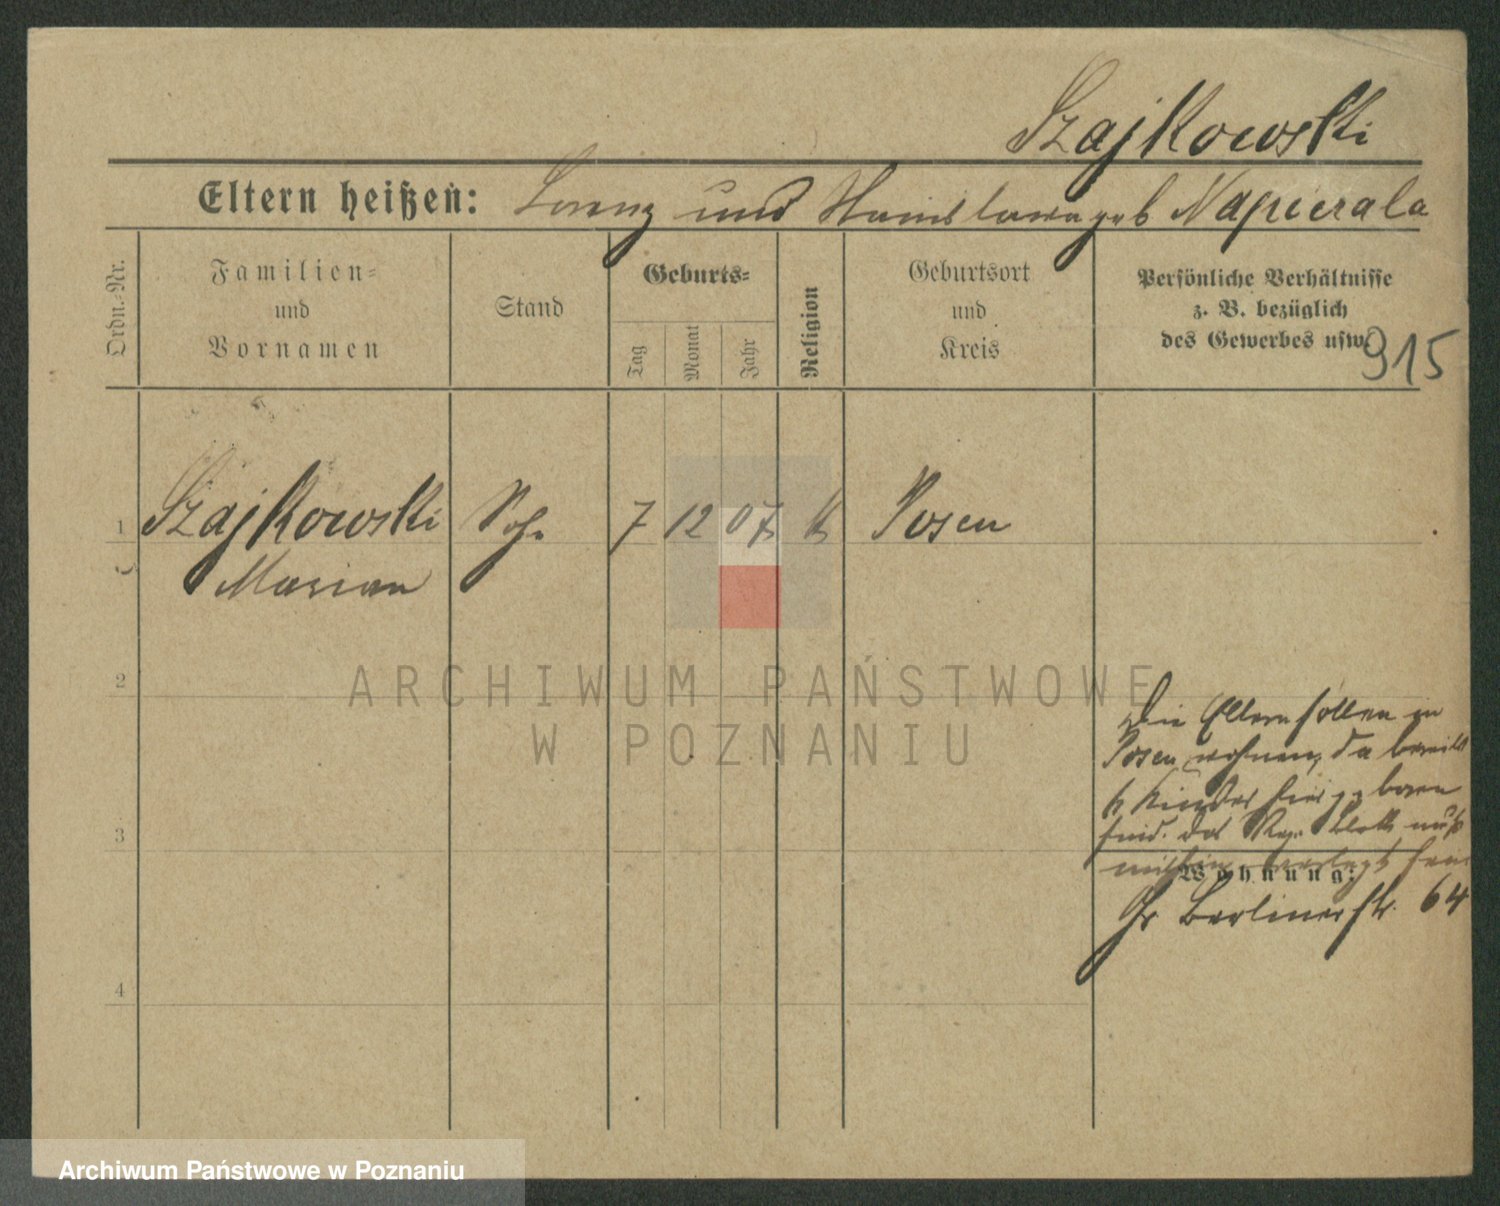 Szajkowski
Eltern heißen: Lorenz und Stanislawa geb Napierala
Ordn.-Nr.
Familien-
und
Vornamen
Stand
Geburts-
Tag
Monat
Jahr
Religion
Geburtsort
und
Kreis
Persönliche Verhältnisse
z. B. bezüglich
des Gewerbes usw.
915
1 Szajkowski Sohn 7 12 07 k Posen
Marian
2
ARCHIWUM PAŃSTWOWE
W POZNANIU
Die Eltern sollen in
Posen wohnen, da bereits
Kinder hier geboren
sind. Das Reg. Blatt muß
mithin verlegt sein
3
Wohnung:
Gr Berlinerstr. 64
4
Archiwum Państwowe w Poznaniu